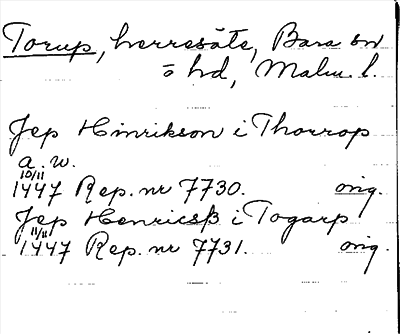 Torup, herresäte, Bara sn
o hd, Malm. l.
Jep Hinrikson i Thorrop
a. w.
10/11
1447 Rep. nr 7730. orig.
Jep Henricsß i Togarp
11/11
1447 Rep. nr 7731. orig.